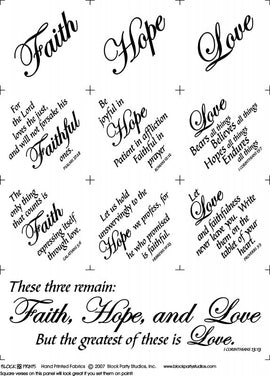 Faith
Hope
Love
For
the Lord
loves the just,
and will not forsake his
Faithful
ones.
PSALMS 37:28
Be
joyful in
Hope
Patient in affliction
Faithful in
prayer
ROMANS 12:12
Love
Bears all things
Believes all things
Hopes all things
Endures
all things
The
only thing
that counts is
Faith
expressing itself
through love.
GALATIANS 5:6
Let us hold
unswervingly to the
Hope we profess, for
he who promised
is faithful.
HEBREWS 10:23
Let
Love
and faithfulness
never leave you. Write
them on the
tablet of your
heart.
PROVERBS 3:3
These three remain:
Faith, Hope, and Love
But the greatest of these is Love.
I CORINTHIANS 13:13
Hand Printed Fabrics © 2007 Block Party Studios, Inc. www.blockpartystudios.com
Square verses on this panel will look great if you set them on point!